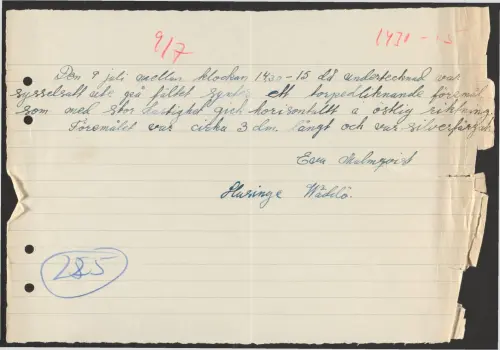 9/7
1430-15
Den 9 juli mellan klockan 1430-15 då undertecknad var
sysselsatt ute på fältet ett torpedliknande föremål
som med stor hastighet gick horisontellt i ostlig riktning.
Föremålet var cirka 3 dm. långt och var silverfärgat.
Ewa Malmqvist
Häringe
285